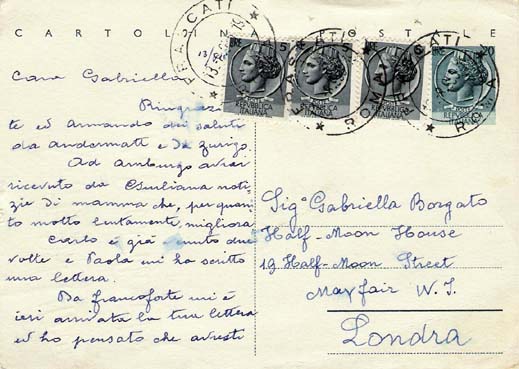 CARTOLINA POSTALE
FRASCATI
ROMA
FRASCATI
ROMA
LIRE 5
LIRE 5
LIRE 20
REPUBBLICA
ITALIANA
Cara Gabriella
Ringrazio
te ed Armando dei saluti
da andermatt e da zurigo.
Ad amburgo avrai
ricevuto da Giuliana noti-
zie di mamma che, per quan
to molto lentamente, migliora
Carlo è già venuto due
volte e Paola mi ha scritto
una lettera.
Da francoforte mi è
ieri arrivata la tua lettera
ed ho pensato che avresti
Sigª Gabriella Borgato
Half-Moon House
19 Half-Moon Street
Mayfair W.I.
Londra